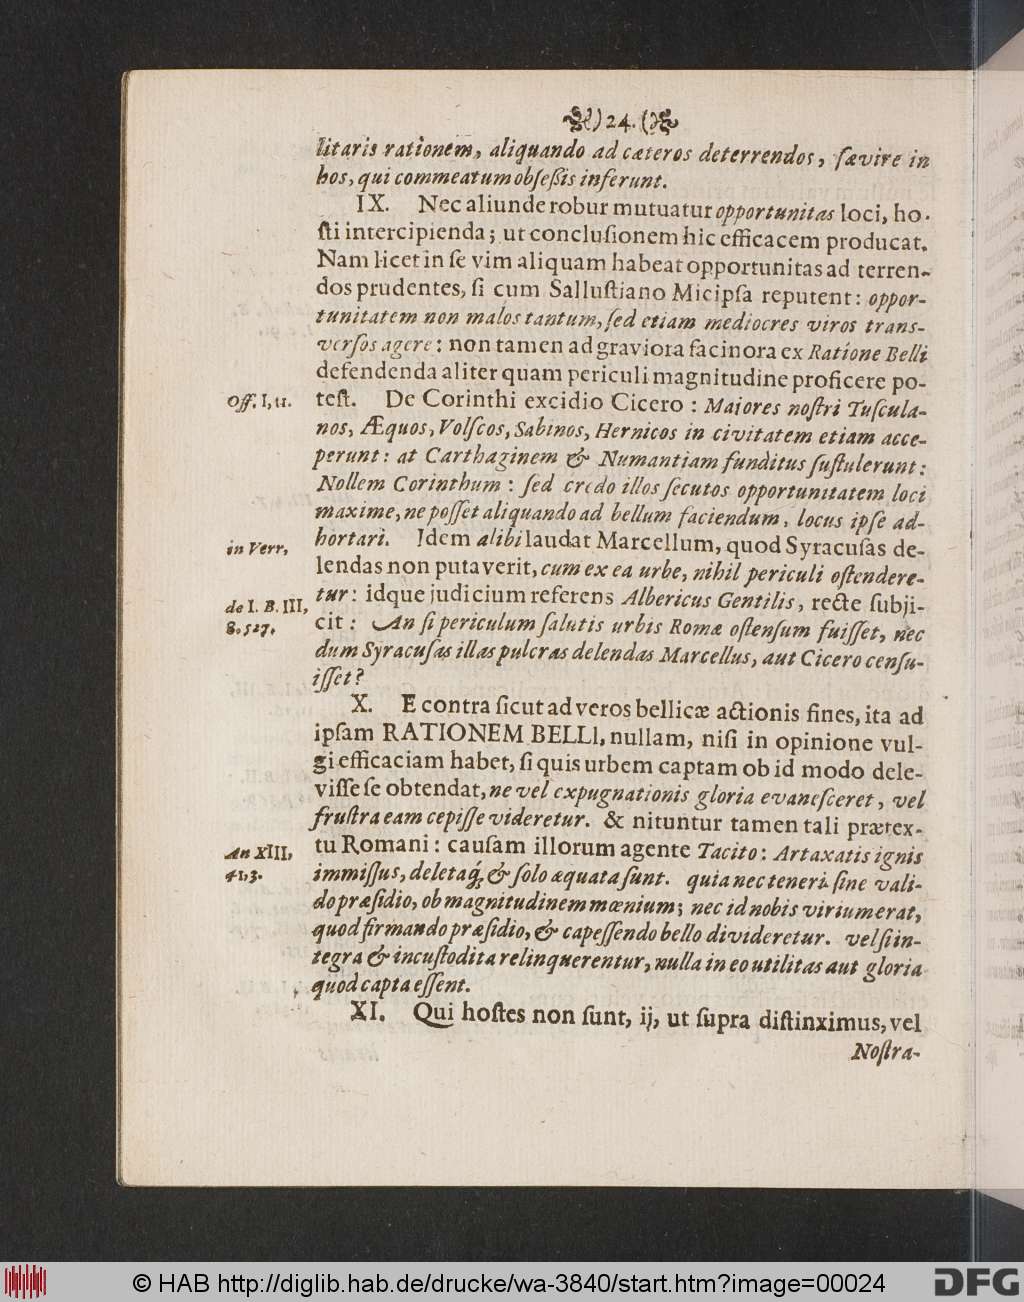 ) 24. (
litaris rationem, aliquando ad cæteros deterrendos, ſævire in
hos, qui commeatum obſeßis inferunt.
IX. Nec aliunde robur mutuatur opportunitas loci, ho-
ſti intercipienda; ut concluſionem hic efficacem producat.
Nam licet in ſe vim aliquam habeat opportunitas ad terren-
dos prudentes, ſi cum Salluſtiano Micipſa reputent: oppor-
tunitatem non malos tantum, ſed etiam mediocres viros trans-
verſos agere: non tamen ad graviora facinora ex Ratione Belli
defendenda aliter quam periculi magnitudine proficere po-
Off. I, 11.
teſt. De Corinthi excidio Cicero: Maiores noſtri Tuſcula-
nos, Æquos, Volſcos, Sabinos, Hernicos in civitatem etiam acce-
perunt: at Carthaginem & Numantiam funditus ſuſtulerunt:
Nollem Corinthum: ſed credo illos ſecutos opportunitatem loci
maxime, ne poſſet aliquando ad bellum faciendum, locus ipſe ad-
hortari. Idem alibi laudat Marcellum, quod Syracuſas de-
in Verr,
lendas non putaverit, cum ex ea urbe, nihil periculi oſtendere-
tur: idque judicium referens Albericus Gentilis, recte ſubji-
de I. B. III,
8. 527.
cit: An ſi periculum ſalutis urbis Romæ oſtenſum fuiſſet, nec
dum Syracuſas illas pulcras delendas Marcellus, aut Cicero cenſu-
iſſet?
X. E contra ſicut ad veros bellicæ actionis fines, ita ad
ipſam RATIONEM BELLI, nullam, niſi in opinione vul-
gi efficaciam habet, ſi quis urbem captam ob id modo dele-
viſſe ſe obtendat, ne vel expugnationis gloria evaneſceret, vel
fruſtra eam cepiſſe videretur. & nituntur tamen tali prætex-
An XIII,
413.
tu Romani: cauſam illorum agente Tacito: Artaxatis ignis
immiſſus, deletaq; & ſolo æquata ſunt. quia nec teneri ſine vali-
do præſidio, ob magnitudinem mœnium; nec id nobis virium erat,
quod firmando præſidio, & capeſſendo bello divideretur. vel ſi in-
tegra & incuſtodita relinquerentur, nulla in eo utilitas aut gloria
quod capta eſſent.
XI. Qui hoſtes non ſunt, ij, ut ſupra diſtinximus, vel
Noſtra-
© HAB http://diglib.hab.de/drucke/wa-3840/start.htm?image=00024
DFG